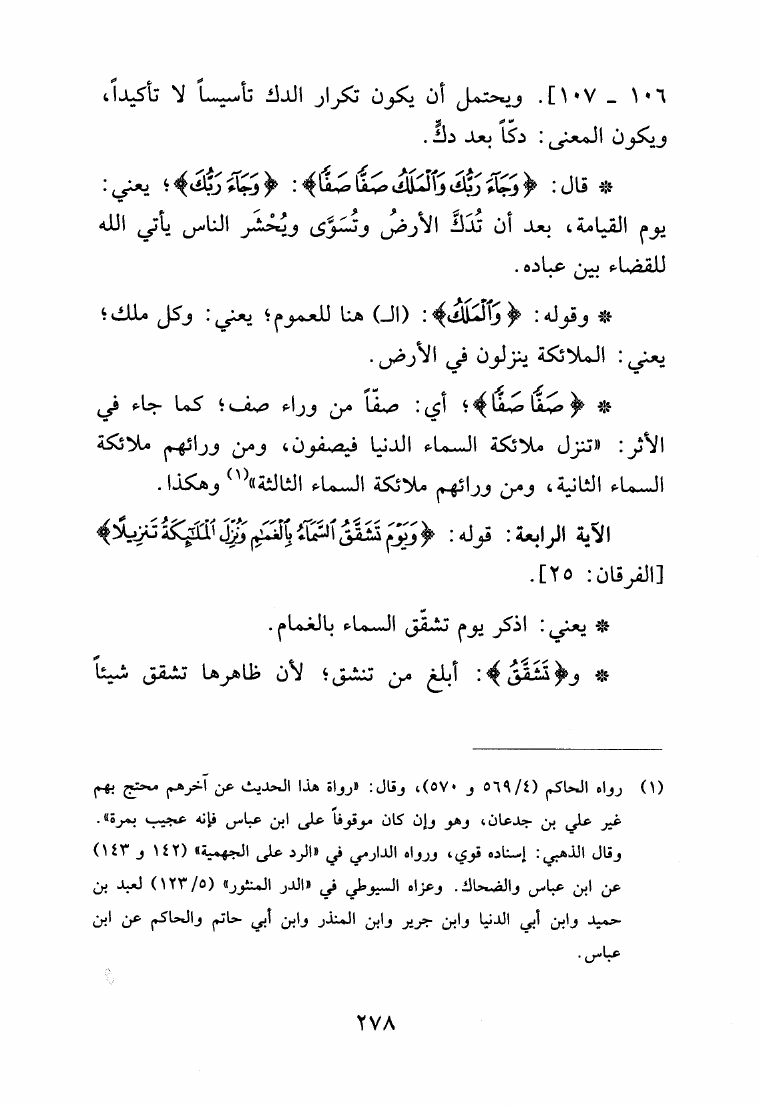 ١٠٦ ـ ١٠٧]. ويحتمل أن يكون تكرار الدك تأسيساً لا تأكيداً،
ويكون المعنى: دكّاً بعد دكٍّ.
* قال: ﴿وَجَآءَ رَبُّكَ وَٱلْمَلَكُ صَفًّا صَفًّا﴾: ﴿وَجَآءَ رَبُّكَ﴾؛ يعني:
يوم القيامة، بعد أن تُدَكَّ الأرضُ وتُسَوَّى ويُحْشَر الناس يأتي الله
للقضاء بين عباده.
* وقوله: ﴿وَٱلْمَلَكُ﴾: (الـ) هنا للعموم؛ يعني: وكل ملك؛
يعني: الملائكة ينزلون في الأرض.
* ﴿صَفًّا صَفًّا﴾؛ أي: صفّاً من وراء صف؛ كما جاء في
الأثر: «تنزل ملائكة السماء الدنيا فيصفون، ومن ورائهم ملائكة
السماء الثانية، ومن ورائهم ملائكة السماء الثالثة»(١) وهكذا.
الآية الرابعة: قوله: ﴿وَيَوْمَ تَشَقَّقُ ٱلسَّمَآءُ بِٱلْغَمَٰمِ وَنُزِّلَ ٱلْمَلَٰٓئِكَةُ تَنزِيلًا﴾
[الفرقان: ٢٥].
* يعني: اذكر يوم تشقّق السماء بالغمام.
* و﴿تَشَقَّقُ﴾: أبلغ من تنشق؛ لأن ظاهرها تشقق شيئاً
(١) رواه الحاكم (٤/ ٥٦٩ و ٥٧٠)، وقال: «رواة هذا الحديث عن آخرهم محتج بهم
غير علي بن جدعان، وهو وإن كان موقوفاً على ابن عباس فإنه عجيب بمرة».
وقال الذهبي: إسناده قوي، ورواه الدارمي في «الرد على الجهمية» (١٤٢ و ١٤٣)
عن ابن عباس والضحاك. وعزاه السيوطي في «الدر المنثور» (٥/ ١٢٣) لعبد بن
حميد وابن أبي الدنيا وابن جرير وابن المنذر وابن أبي حاتم والحاكم عن ابن
عباس.
٢٧٨